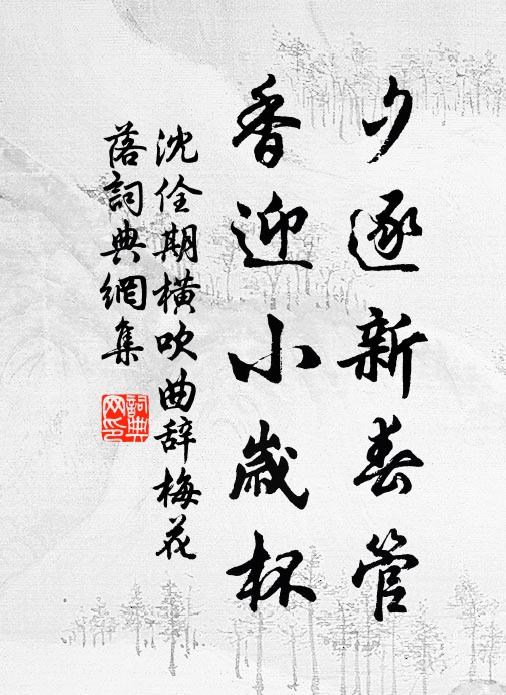 夕逐新春管
香迎小歲杯
沈佺期橫吹曲辭梅花
落詞典網集
詞典
网印